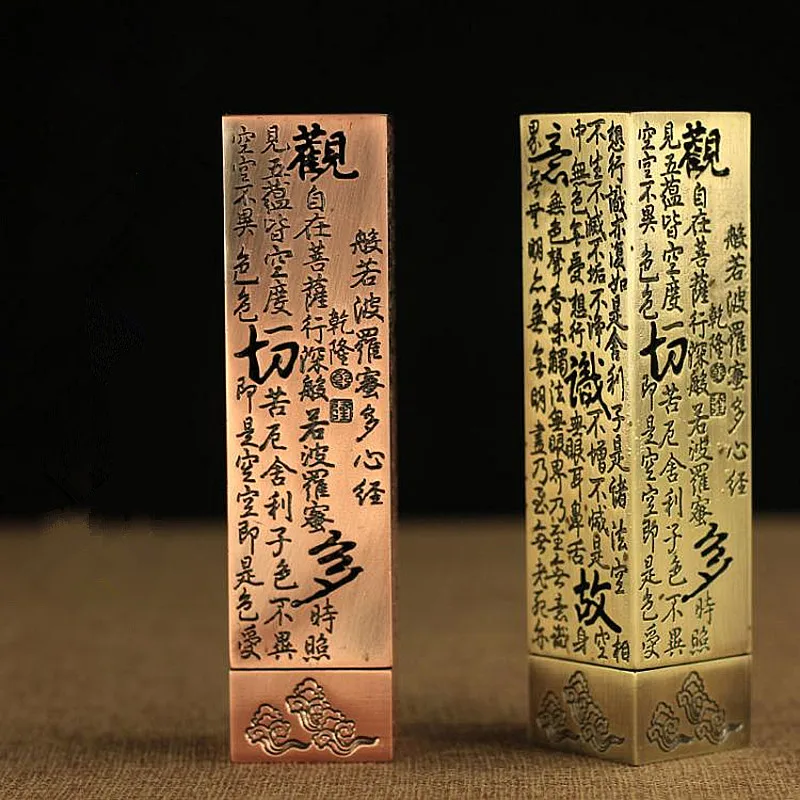 般若波羅蜜多心経
乾隆
觀自在菩薩行深般若波羅蜜多時照
見五蘊皆空度一切苦厄舍利子色不異
空空不異色色即是空空即是色受
般若波羅蜜多心経
乾隆
觀自在菩薩行深般若波羅蜜多時照
見五蘊皆空度一切苦厄舍利子色不異
空空不異色色即是空空即是色受
想行識亦復如是舍利子是諸法空相
不生不滅不垢不淨不增不減是故空
中無色無受想行識無眼耳鼻舌身
意無色聲香味觸法無眼界乃至無意識
界無無明亦無無明盡乃至無老死亦